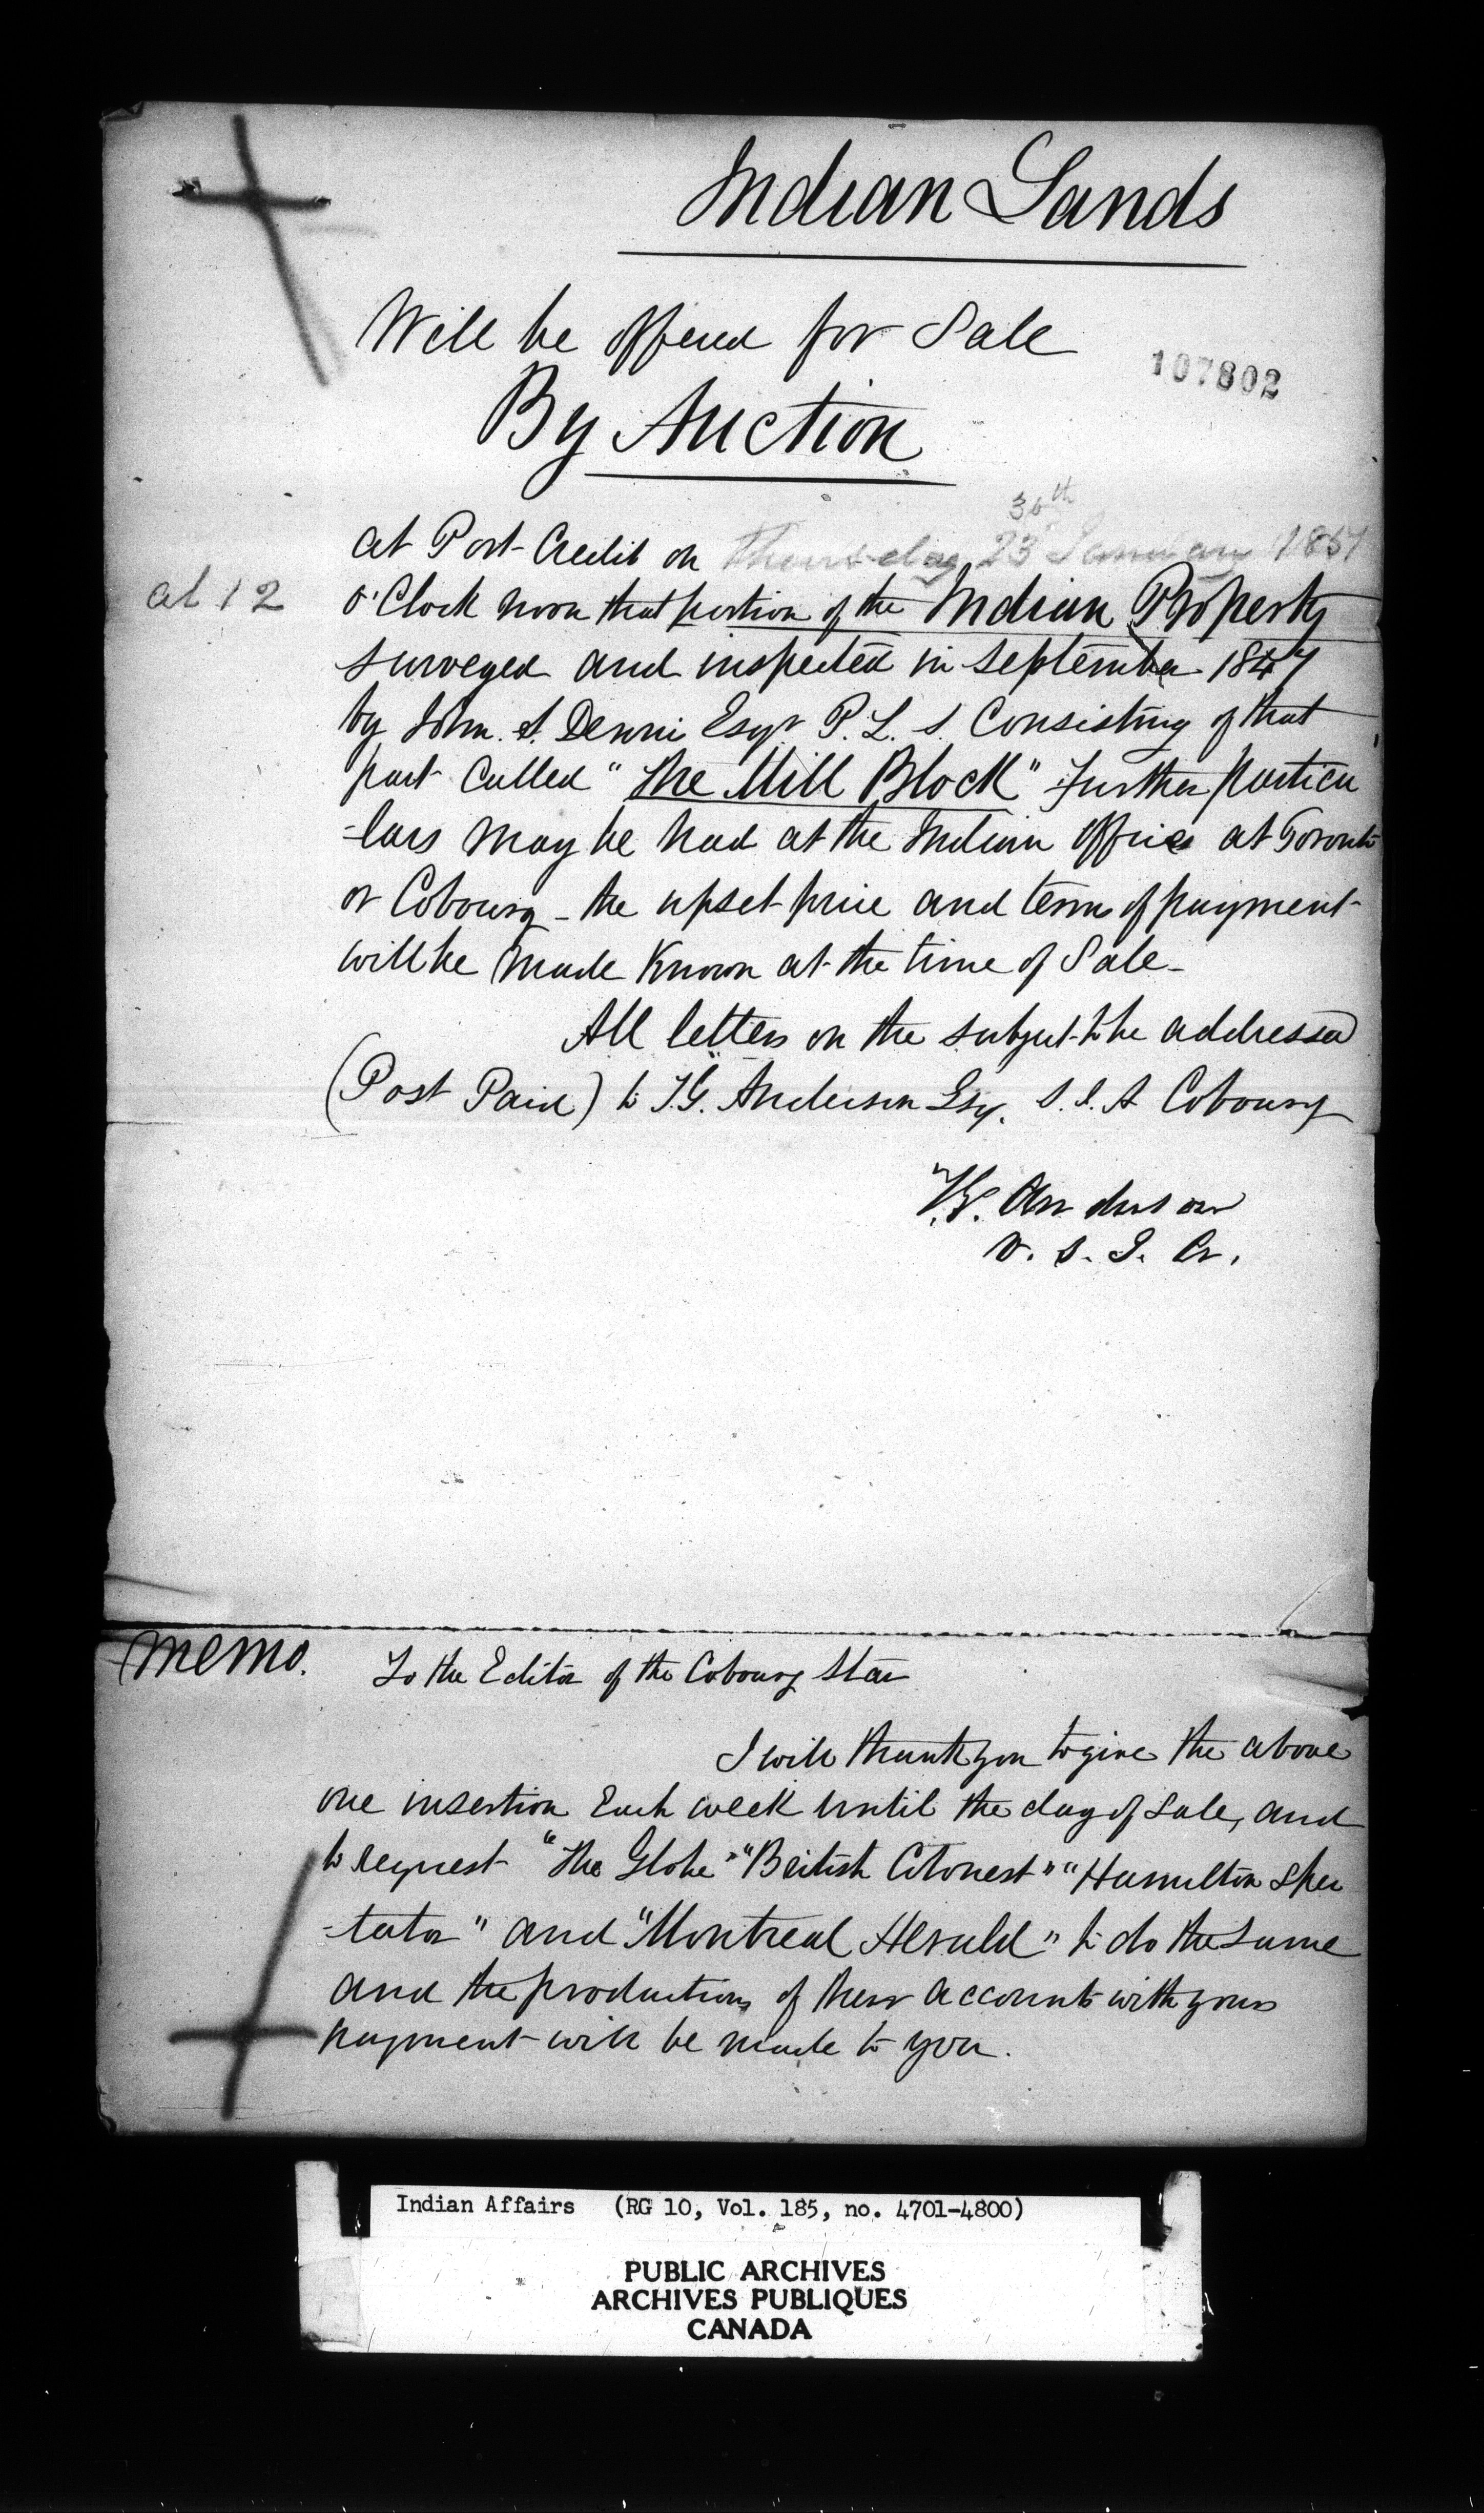 Indian Lands
Will be offered for Sale
107802
By Auction
30th
at Port Credit on Thursday 23 January 1851
at 12 o'Clock noon that portion of the Indian Property
surveyed and inspected in September 1847
by John S. Dennis Esqr P. L. S. Consisting of that
part Called "The Mill Block" Further particu
-lars may be had at the Indian Office at Toronto
or Cobourg - the upset price and terms of payment
will be made Known at the time of Sale-
All letters on the subject to be addressed
(Post Paid) to T.G. Anderson Esq. S. I. A Cobourg
T.G. Anderson
V. S. I. A.
Memo. To the Editor of the Cobourg Star
I will thank you to give the above
one insertion Each week until the day of sale, and
to request "The Globe" "British Colonest" "Hamilton Spec
-tator" and "Montreal Herald" to do the same
and the production of their accounts with yours
payment will be made to you.
Indian Affairs (RG 10, Vol. 185, no. 4701-4800)
PUBLIC ARCHIVES
ARCHIVES PUBLIQUES
CANADA